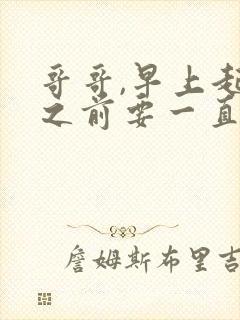 哥哥,早上起
之前要一直
詹姆斯布里吉